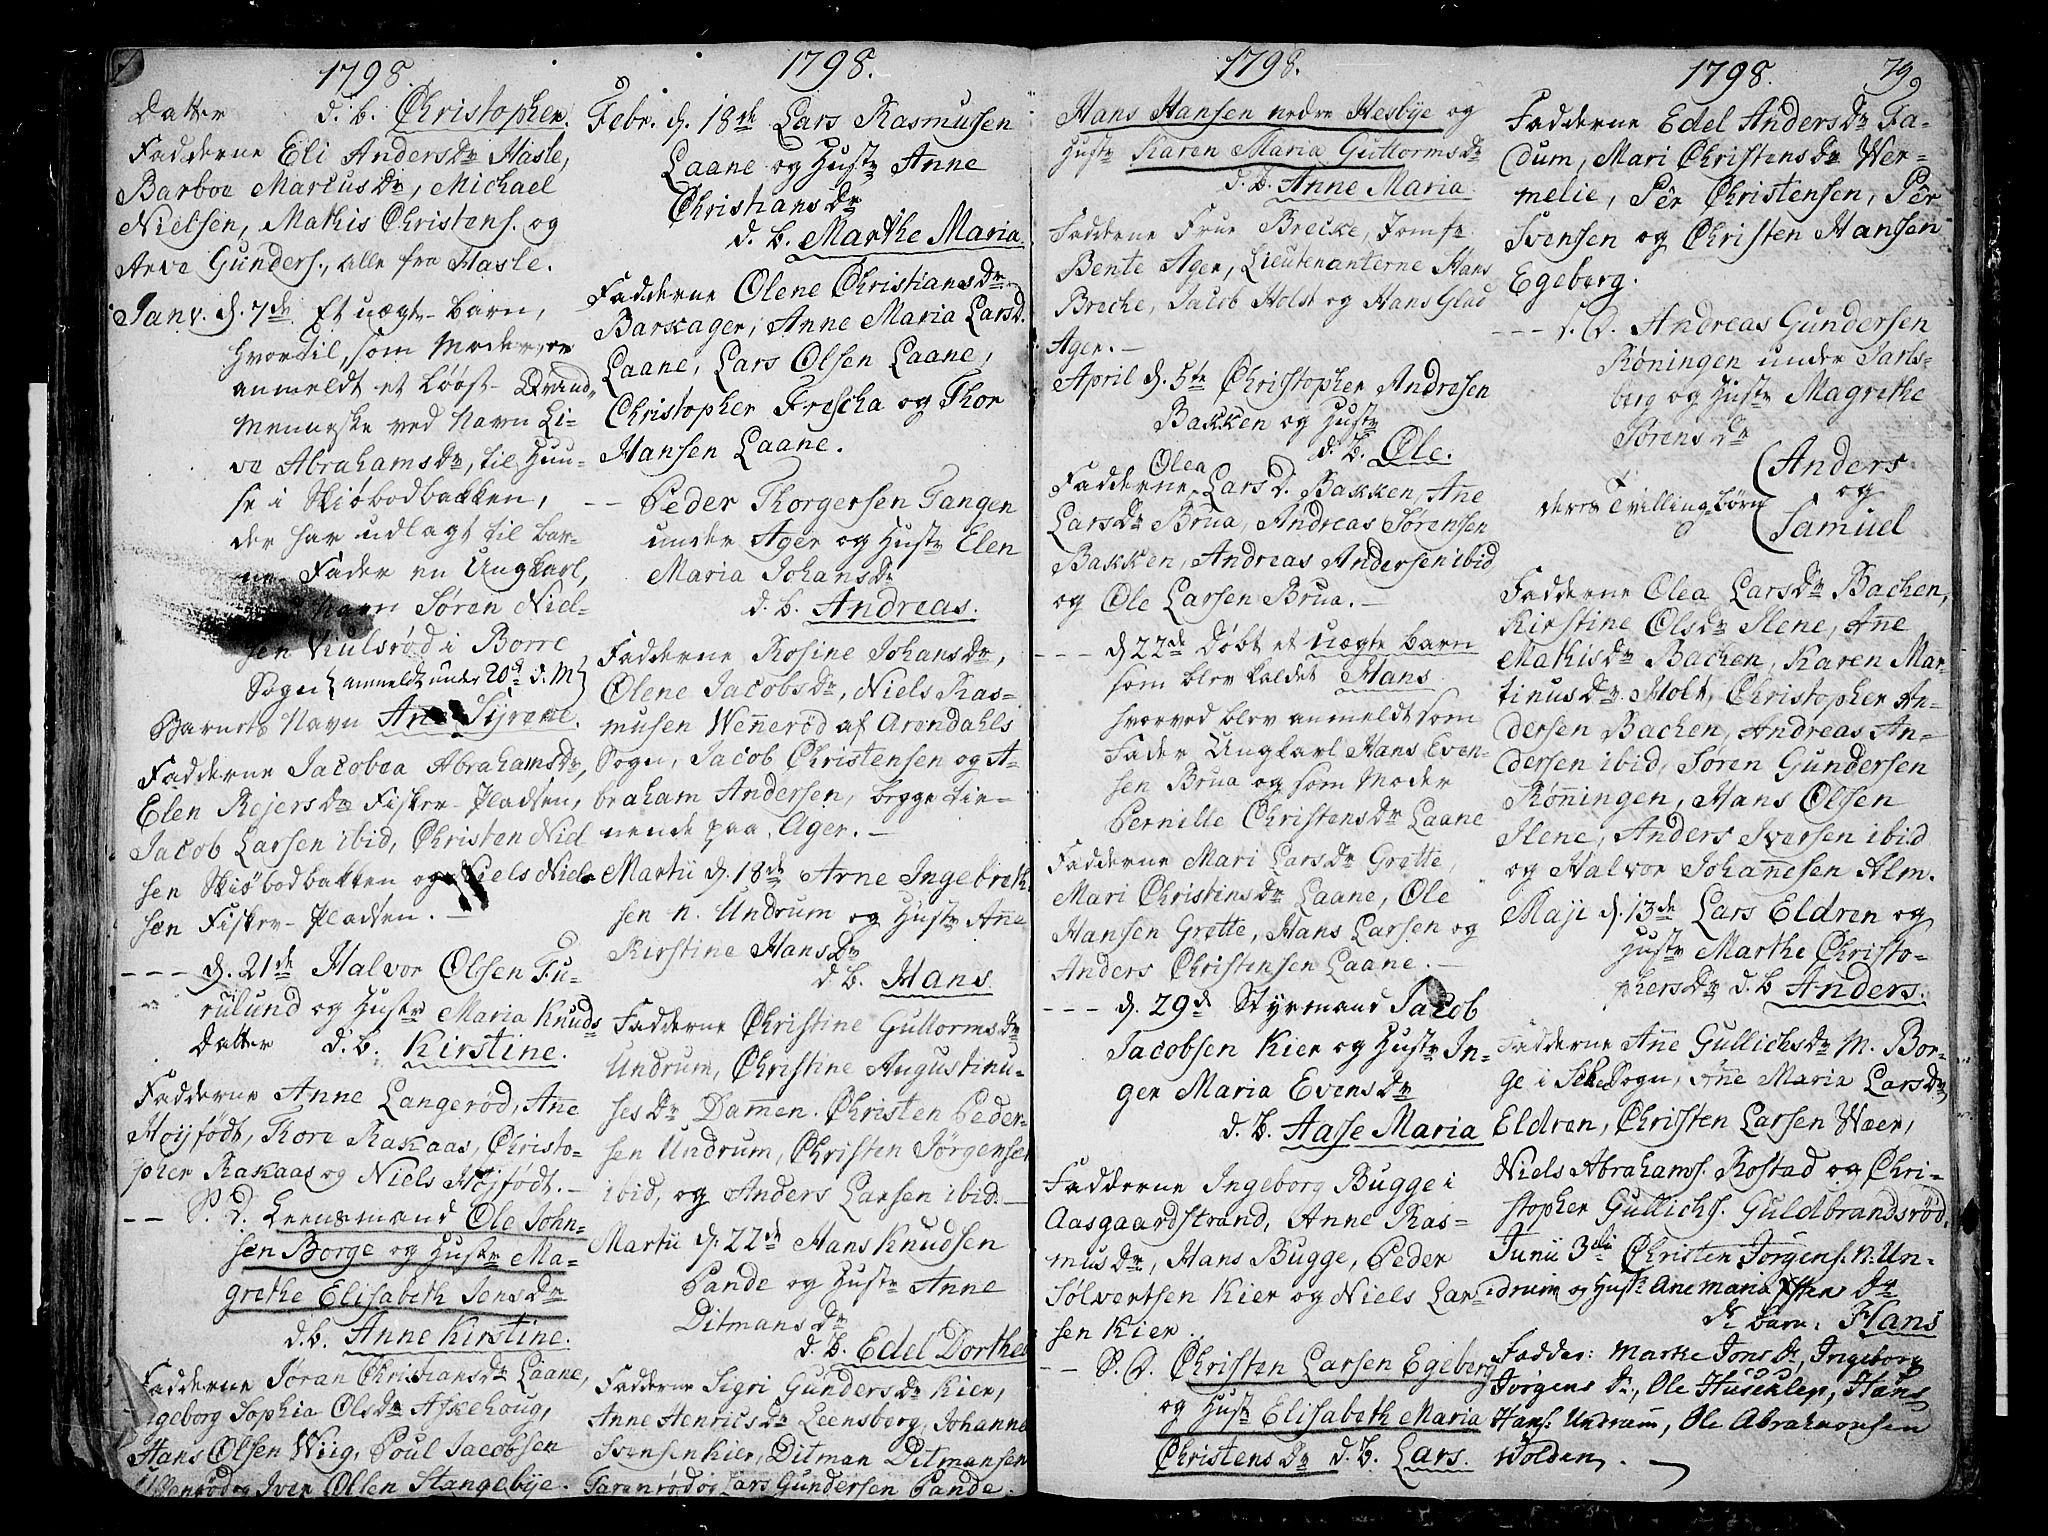 1798.
Datter d. b. Christopher.
Fadderne Eli Andersdr Hasle,
Barboe Marcusdr, Michael
Nielsen, Mathis Christens. og
Arve Gunders., alle fra Hasle.
Janv. d. 7de Et uægte barn,
hvortil, som Moder, er
anmeldt et Lööst Qvind-
menneske ved Navn Li-
ve Abrahamsdr, til Huu-
se i Skiöbodbakken,
der har udlagt til bar-
ne Fader en Ungkarl,
Navn Sören Niel-
sen Kiulsröd i Borre
Sogn (anmeldt under 20d d. M)
Barnets Navn Syrene.
Fadderne Jacobea Abrahamsdr,
Elen Rejersdr Fisker-Pladsen,
Jacob Larsen ibid, Christen Niel
sen Skiöbodbakken og Niels Niel-
sen Fisker-Pladsen. —
--- d. 21de Halvor Olsen Fu-
rulund og Hustr Maria Knuds
Datter d. b. Kirstine.
Fadderne Anne Langeröd, Añe
Höijfödt, Tore Rakaas, Christo-
pher Rakaas og Niels Höjfödt. —
-- S. D. Leensmand Ole John-
sen Borge og Hustr Ma-
grethe Elisabeth Jensdr
d. b. Anne Kirstine.
Fadderne Jöran Christiansdr Laane,
Ingeborg Sophia Olsdr Askehoug,
Hans Olsen Wiig, Poul Jacobsen
og Iver Olsen Stangebye.
1798.
Febr. d. 18de Lars Rasmusen
Laane og Hustr Anne
Christiansdr
d. b. Marthe Maria.
Fadderne Olene Christiansdr
Barkager, Anne Maria Larsd.
Laane, Lars Olsen Laane,
Christopher Frescha og Thor
Hansen Laane.
-- Peder Thorgersen Tangen
under Ager og Hustr Elen
Maria Johansdr
d. b. Andreas.
Fadderne Rosine Johansdr,
Olene Jacobsdr, Niels Ras-
musen Weñeröd af Arendahls
Sogn, Jacob Christensen og A-
braham Andersen, begge tie-
nende paa Ager. —
Martii d. 18de Arne Ingebreth
sen n. Undrum og Hustr Añe
Kirstine Hansdr
d. b. Hans
Fadderne Christine Guttormsdr
Undrum, Christine Augustinu-
sesdr Dam̃en. Christen Peder-
sen Undrum, Christen Jörgensen
ibid, og Anders Larsen ibid. —
Martii d. 22de Hans Knudsen
Pande og Hustr Anne
Ditmansdr
d. b. Edel Dorthea
Fadderne Sigri Gundersdr Kier,
Anne Henricsdr Leensberg, Johanne
Svensen Kier, Ditman Ditmansen
Faranröd og Lars Gundersen Pande.
1798.
Hans Hansen nedre Hesbye og
Hustr Karen Maria Guttormsdr
d. b. Anne Maria.
Fadderne Frue Brecke, Jomfr.
Bente Ager, Lieutenanterne Hans
Breche, Jacob Holst og Hans Glad
Ager. —
April d. 5te Christopher Andresen
Bakken og Hustr
d. b. Ole.
Olea
Fadderne Larsd. Bakken, Ane
Larsdr Brua, Andreas Sörensen
Bakken, Andreas Andersen ibid
og Ole Larsen Brua. —
--- d 22de Döbt et uægte barn
som blev kaldet Hans
hvorved blev anmeldt som
Fader Ungkarl Hans Even-
sen Brua og som Moder
Pernille Christensdr Laane
Fadderne Mari Larsdr Grette,
Mari Christinsdr Laane, Ole
Hansen Grette, Hans Larsen og
Anders Christensen Laane. —
--- d. 29d Styrmand Jacob
Jacobsen Kier og Hustr In-
ger Maria Evensdr
d. b. Aasse Maria
Fadderne Ingeborg Bugge i
Aasgaardstrand, Anne Ras-
musdr, Hans Bugge, Peder
Sölvertsen Kier og Niels Lar-
sen Kier
-- S. D. Christen Larsen Egeberg
og Hustr Elisabeth Maria
Christensdr d. b. Lars.
1798. 79
Fadderne Edel Andersdr Fa-
dum, Mari Christensdr Wer-
melie, Pêr Christensen, Pêr
Svensen og Christen Hansen
Egeberg.
--- S. D. Andreas Gundersen
Röningen under Jarls-
berg og Hustr Magrethe
Sörensdr
deres Tvillingbörn (Anders
og
Samuel
Fadderne Olea Larsdr Bachen,
Kirstine Olsdr Ilene, Añe
Mathisdr Bachen, Karen Mar-
tinusdr Holt, Christopher An-
dersen Bachen, Andreas An-
dersen ibid, Sören Gundersen
Röñingen, Hans Olsen
Ilene, Anders Iversen ibid
og Halvor Johañesen Alm.
Maji d. 13de Lars Eldren og
Hustr Marthe Christo-
phersdr d. b Anders.
Fadderne Añe Gullichsdr M. Bor-
ge i Sogn, Añe Maria Larsdr
Eldren, Christen Larsen Wæer,
Niels Abrahams. Rostad og Chri-
stopher Gullichs. Guldbrandsröd.
Junii 3di Christen Jörgens. N. Un-
drum og Hustr Ane Maria dr
dr Barn: Hans
Fadder: Marte Jonsdr, Ingeborg
Jorgensdr, Ole Huseklep, Hans
Hans: Undrum, Ole Abrahamsen
Wolden. —